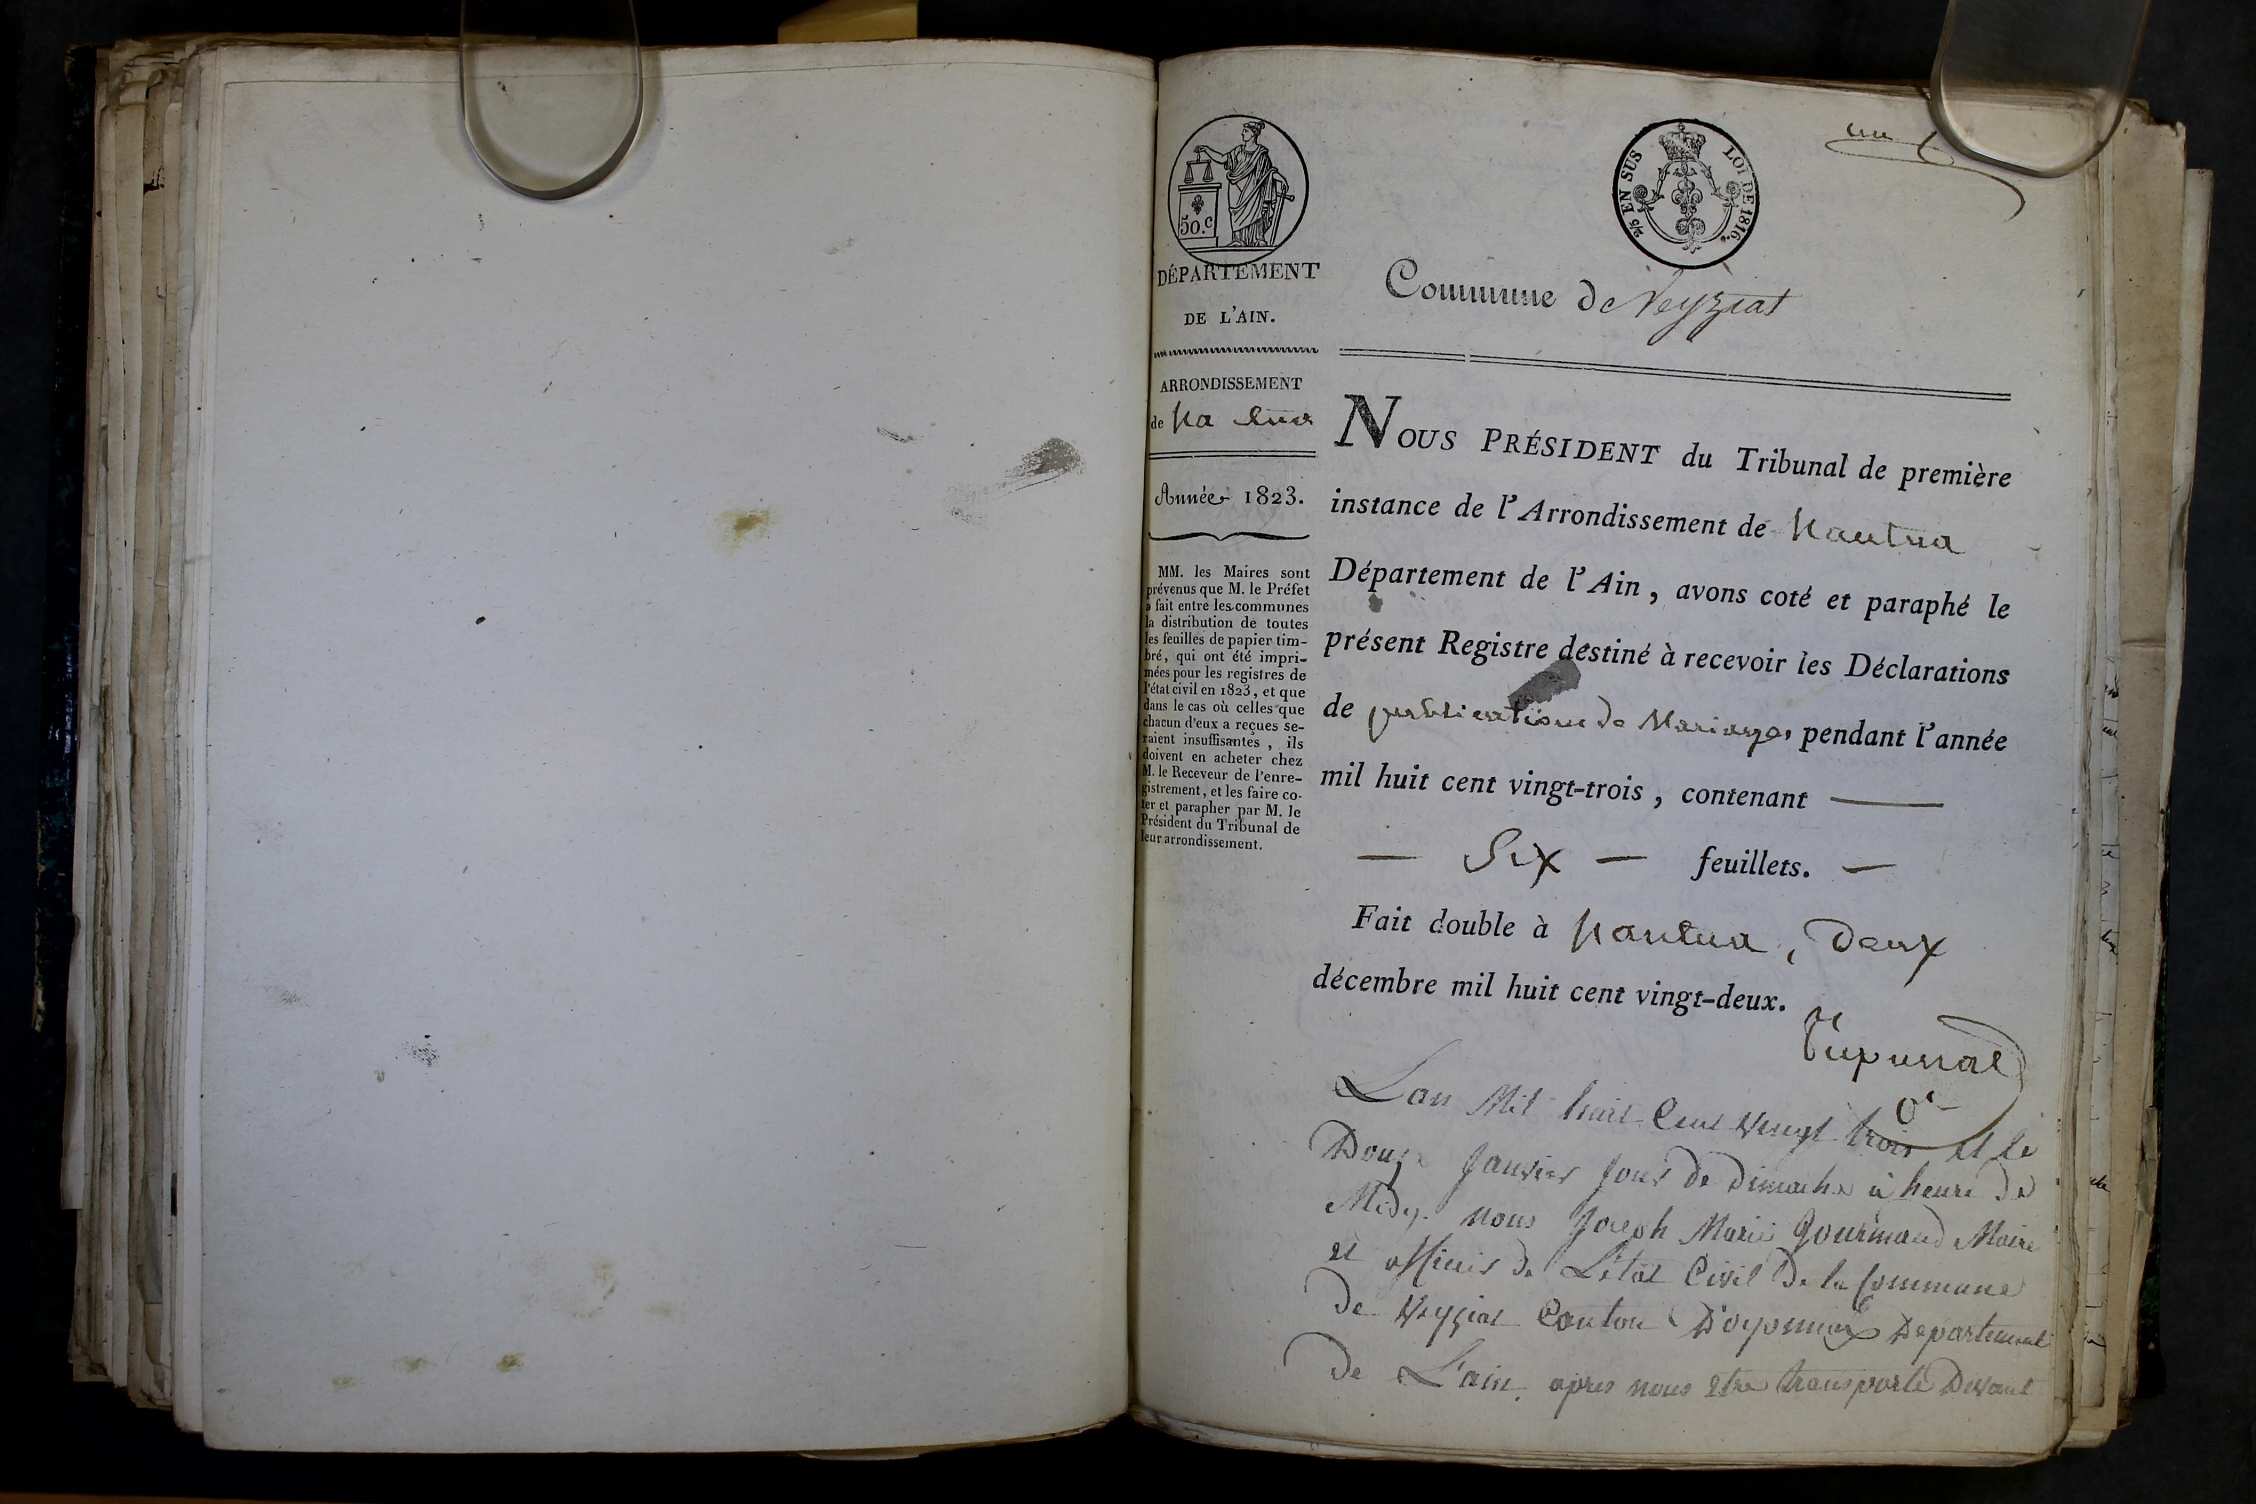 un
50.C
2/5 EN SUS LOI DE 1816.
DÉPARTEMENT
DE L'AIN.
ARRONDISSEMENT
de Nantua
Année 1823.
MM. les Maires sont
prévenus que M. le Préfet
a fait entre les communes
la distribution de toutes
les feuilles de papier tim-
bré, qui ont été impri-
mées pour les registres de
l'état civil en 1823, et que
dans le cas où celles que
chacun d'eux a reçues se-
raient insuffisantes, ils
doivent en acheter chez
M. le Receveur de l'enre-
gistrement, et les faire co-
ter et parapher par M. le
Président du Tribunal de
leur arrondissement.
Commune de Veyziat
NOUS PRÉSIDENT du Tribunal de première
instance de l'Arrondissement de Nantua
Département de l'Ain, avons coté et paraphé le
présent Registre destiné à recevoir les Déclarations
de publications de Mariages pendant l'année
mil huit cent vingt-trois, contenant —
— Six — feuillets. —
Fait double à Nantua, Deux
décembre mil huit cent vingt-deux.
Lan Mil huit Cent Vingt trois et le
Douze Janvier Jour de Dimache à heure de
Midy. nous Joseph Marie Gourmand Maire
et officier de L'état Civil De la Commune
De Veyziat Canton D'oyonnax Departement
De L'ain, apres nous etre transporté Devant